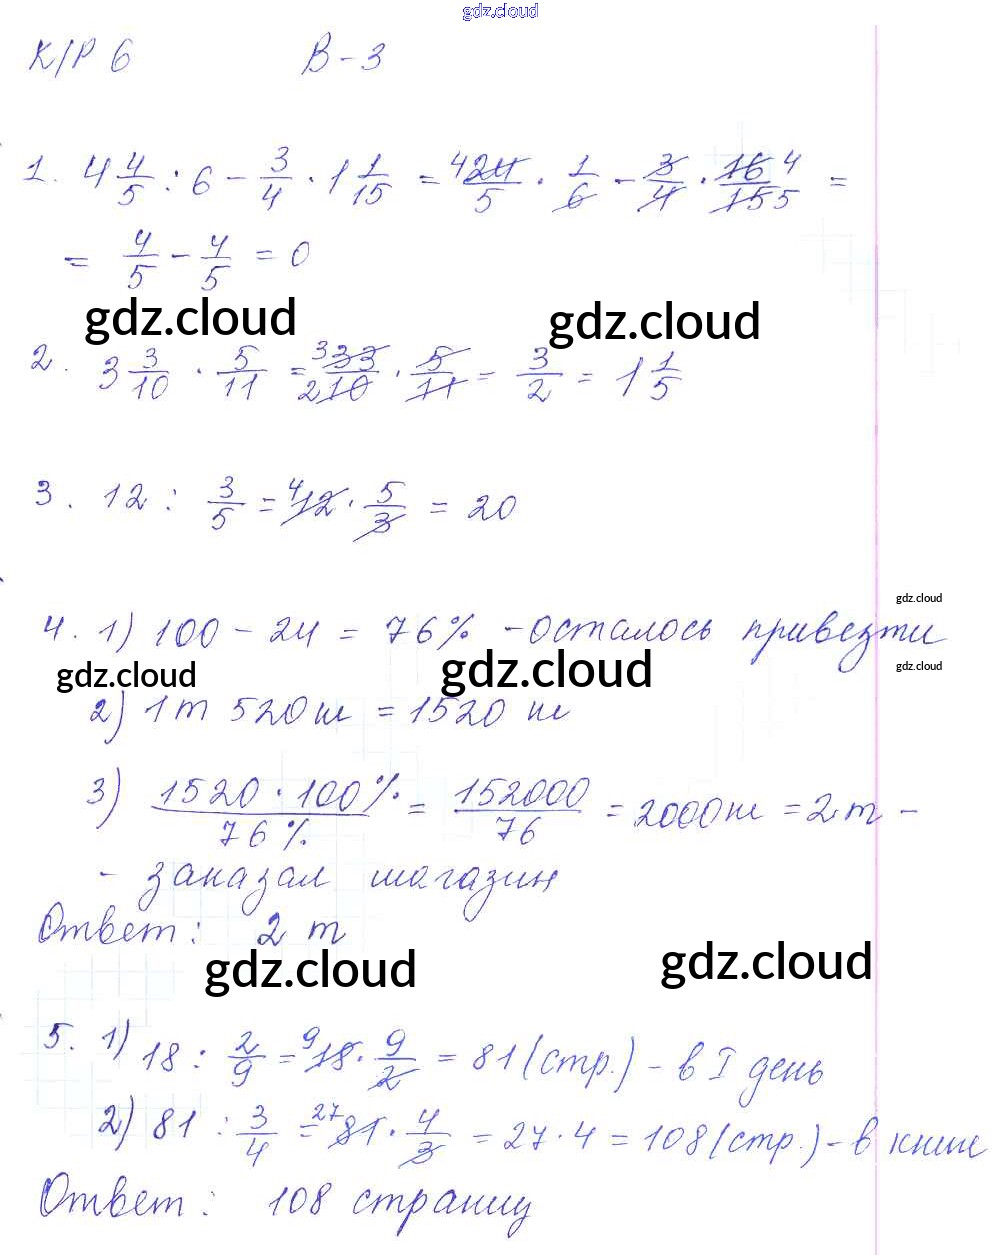 gdz.cloud
К/Р 6 В-3
1. 4 4/5 : 6 - 3/4 · 1 1/15 = 4 24/5 · 1/6 - 3/4 · 16/15 4 5 =
= 4/5 - 4/5 = 0
gdz.cloud gdz.cloud
2. 3 3/10 · 5/11 = 3 33/2 10 · 5/11 = 3/2 = 1 1/5
3. 12 : 3/5 = 4 12 · 5/3 = 20
gdz.cloud
4. 1) 100 - 24 = 76% - осталось привезти
gdz.cloud gdz.cloud gdz.cloud
2) 1т 520кг = 1520 кг
3) 1520 · 100%/76% = 152000/76 = 2000кг = 2т -
- заказал магазин
Ответ: 2 т
gdz.cloud gdz.cloud
5. 1) 18 : 2/9 = 9 18 · 9/2 = 81 (стр.) - в I день
2) 81 : 3/4 = 27 81 · 4/3 = 27 · 4 = 108 (стр.) - в книге
Ответ: 108 страниц